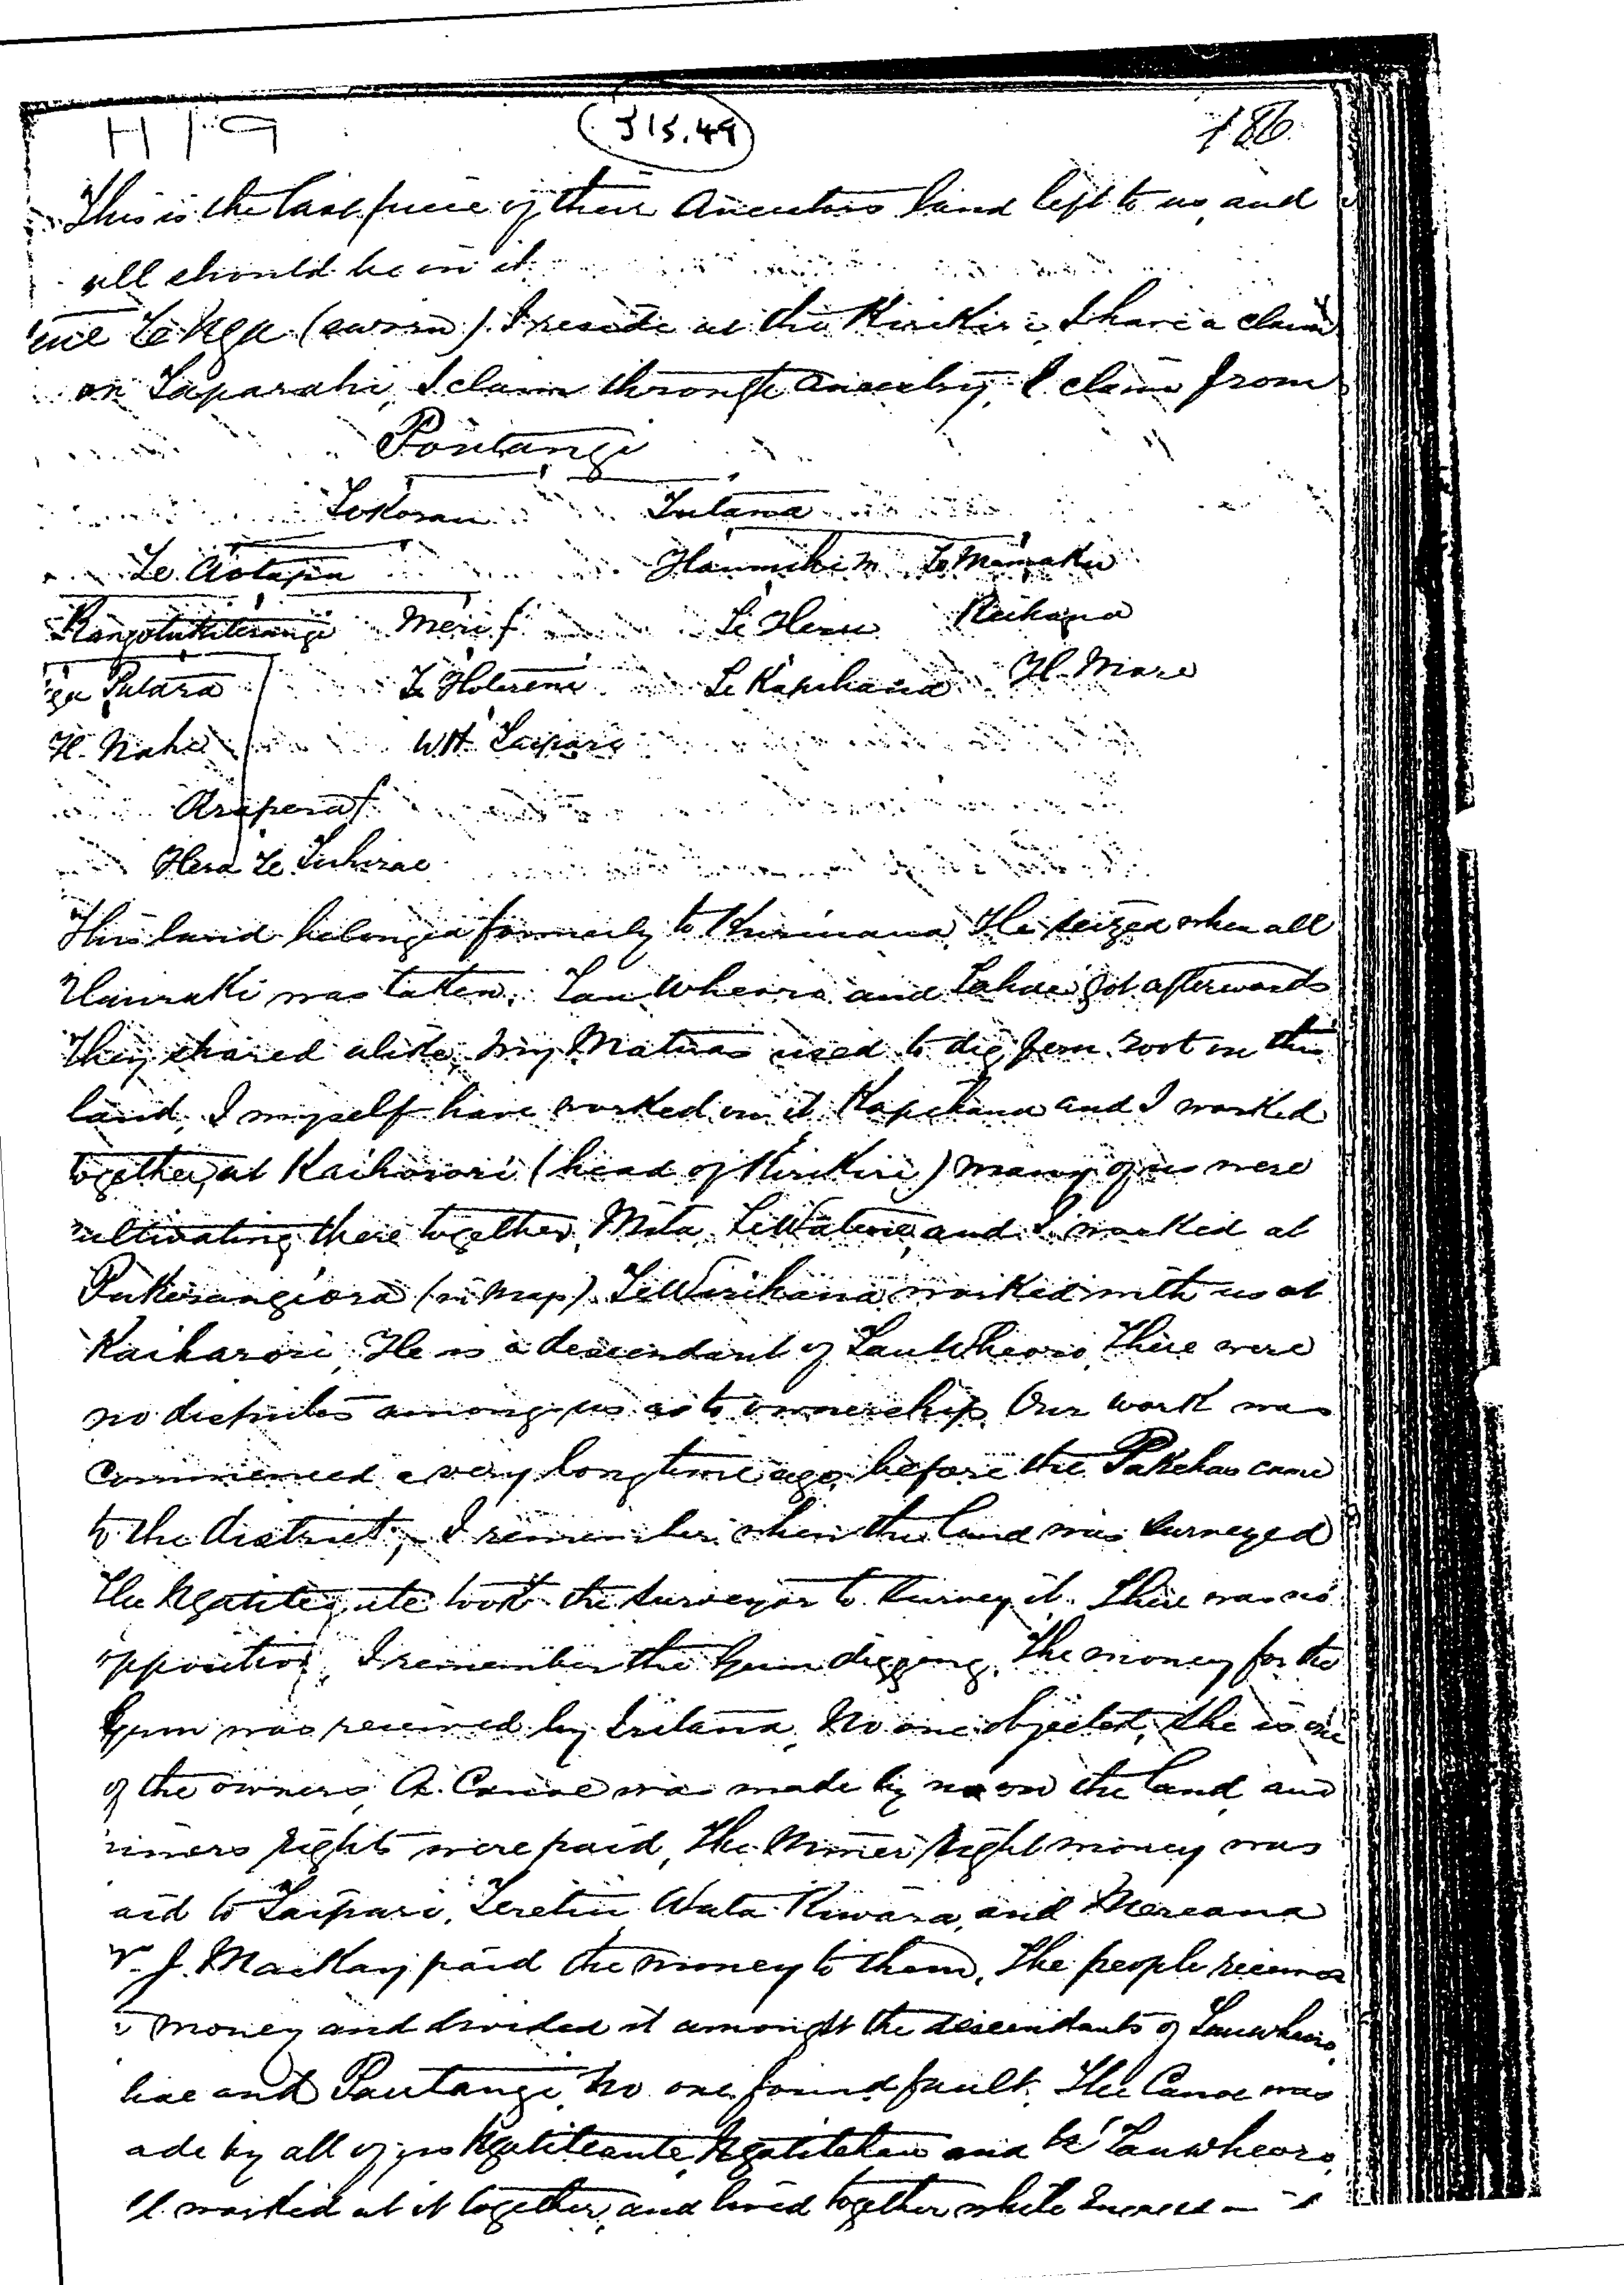 H 19 315.49 186
This is the last piece of their Ancestors land left to us, and
all should be in it
Te Nga (sworn). I reside at the Kirikiri, I have a claim
on Taparahi, I claim through ancestry, I claim from
Poutangi
Tokorau Tutana
Te Aotapu Haumihi m Te Mamaku
Rangitukiterangi Meri f Te Heru Reihana
Putara Te Hoterene Te Kapihana H. Mare
H. Naha WH Taipari
Arapera f.
Hera Te Tuhirae
This land belonged formerly to Kurimana, He seized when all
Hauraki was taken. Tau Wheoro and Tahae got afterwards
They shared alike, my Matuas used to dig fern root on this
land, I myself have worked on it, Kapihana and I worked
together, at Kaihorori (head of Kirikiri) many of us were
cultivating there together, Mita, Te Watene, and I worked at
Pukerangiora (in map). Te Wirihana worked with us at
Kaiharori, He is a descendant of TauWheoro, There were
no disputes among us as to ownership, Our work was
commenced a very long time ago, before the Pakehas came
to the district, I remember when the land was surveyed
The Ngatiteaute took the surveyor to survey it. There was no
opposition, I remember the Gum digging. The money for the
Gum was received by Iritana, No one objected, She is one
of the owners, A Canoe was made by us on the land, and
miners rights were paid, The Miner right money was
aid to Taipari, Teretiu Wata Kiwara, and Mereana
r. J. MacKay paid the money to them, The people received
money and divided it amongst the descendants of Tauwheoro,
hae and Pautangi, No one found fault. The Canoe was
ade by all of us Ngatiteaute, Ngatitahae and Tauwheoro,
ll worked at it together, and lived together while